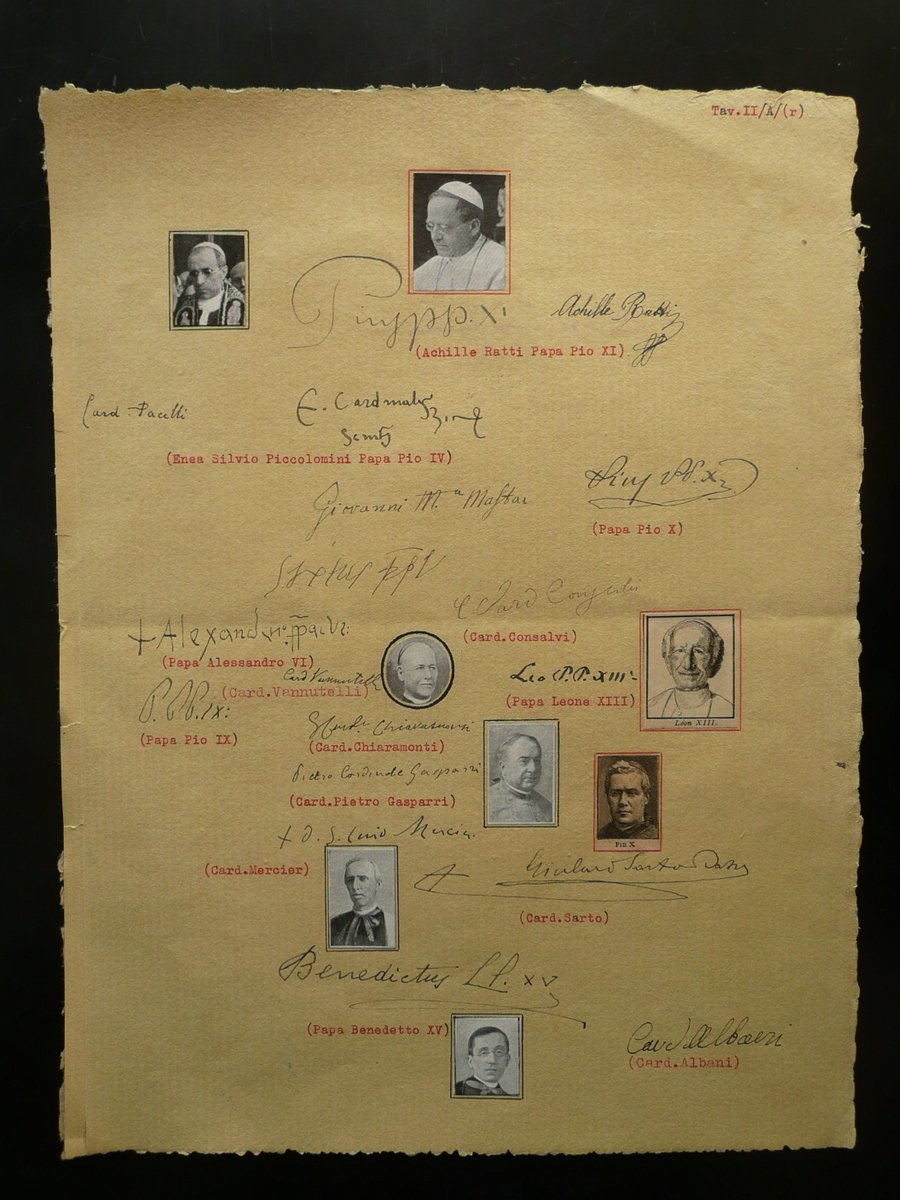 Tav.II/A/(r)
Pius pp. XI
Achille Ratti
(Achille Ratti Papa Pio XI)
Card. Pacelli
E. Cardinalis
(Enea Silvio Piccolomini Papa Pio IV)
Pius PP. X
Giovanni M.a Mastai
(Papa Pio X)
Sixtus PP V
Card Consalvi
(Card.Consalvi)
+ Alexander pp a VI:
(Papa Alessandro VI)
Card Vannutelli
Leo P.P. XIII
(Card.Vannutelli)
(Papa Leone XIII)
P. PP. IX:
Léon XIII.
(Papa Pio IX)
Chiaramonti
(Card.Chiaramonti)
Pietro Cardinale Gasparri
(Card.Pietro Gasparri)
+ D. J. Card Mercier.
Pie X
(Card.Mercier)
Sarto
(Card.Sarto)
Benedictus PP. XV
(Papa Benedetto XV)
Card Albani
(Card.Albani)